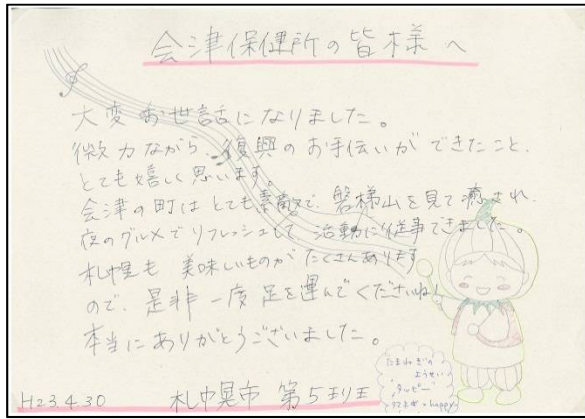 会津保健所の皆様へ
大変お世話になりました。
微力ながら、復興のお手伝いができたこと、
とても嬉しく思います。
会津の町はとても素敵で、磐梯山を見て癒され、
夜のグルメでリフレッシュして、活動に従事できました。
札幌も美味しいものがたくさんあります
ので、是非一度足を運んでくださいね!
本当にありがとうございました。
たまねぎの
ようせい
タッピー
happy
H23.4.30 札幌市 第5班